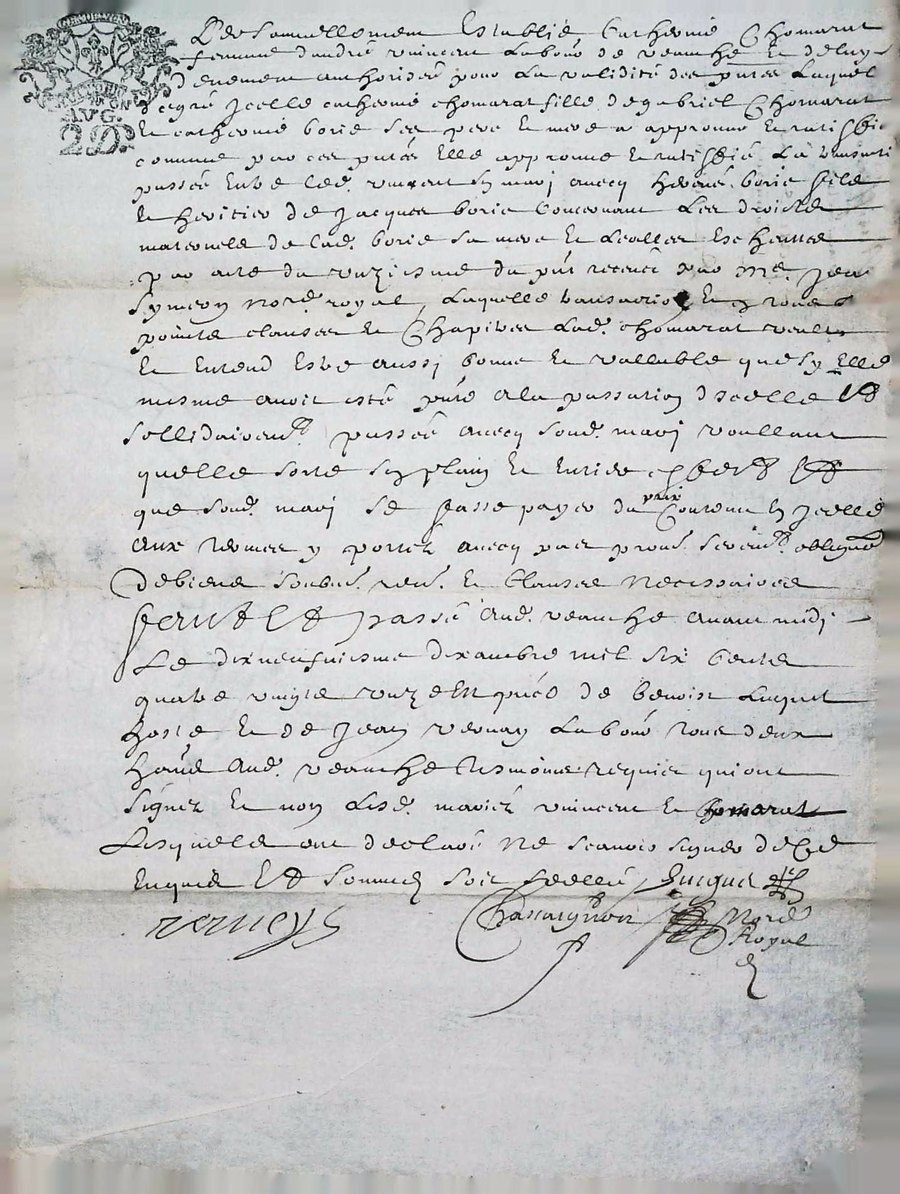 AVG.
2D.
Personnellement Establie Catherine Chomarat
femme dandré vincent Labour de veauche Et de luy
deuement authorisee pour La validité des pntes Laquel
de gré Icelle catherine chomarat fille de gabriel Chomarat
Et catherine borie ses pere Et mere a approuvé Et ratiffié
comme par ces pntes Elle approuve Et ratiffie La transacti
passée Entre led. vincent sn mari avecq borie fils
Et heritier de Jacques borie Concernant Les droicts
maternels de lad. borie sa mere Et Escheutes
par acte du onziesme du pnt receue par Me Jean
Symeon Nore. royal, Laquelle transaction En tous ses
points clauses Et Chapitres Lad. chomarat veult
Et Entend Estre aussi bonne Et vallable que sy Elle
mesme avoit esté pnte a la passation dicelle Et
sollidairemt. passée avecq sond. mari voullant
quelle sorte sn plain Et Entier effect Et
que sond. mari se fasse payer du prix Contenu En Icelle
aux termes y portez avecq pnes prom. sermt. obligaon
de biens soubm. ren. Et Clauses Necessaires
faict Et passé aud. veauche avant midi
Le dixneufuiesme dixambre mil six Cents
quatre vingts onze Est pnces de benoist Luquet
hoste Et de Jean vernay Labour tous deux
habns aud. veauche tesmoins requis qui ont
signez Et non Lesd. mariez vincent Et Chomarat
Lesquels ont declaré Ne scavoir signer de Ce
Enquis Et Sommes soit scellé Luquet
verneys Chassaignon Nore.
Royal